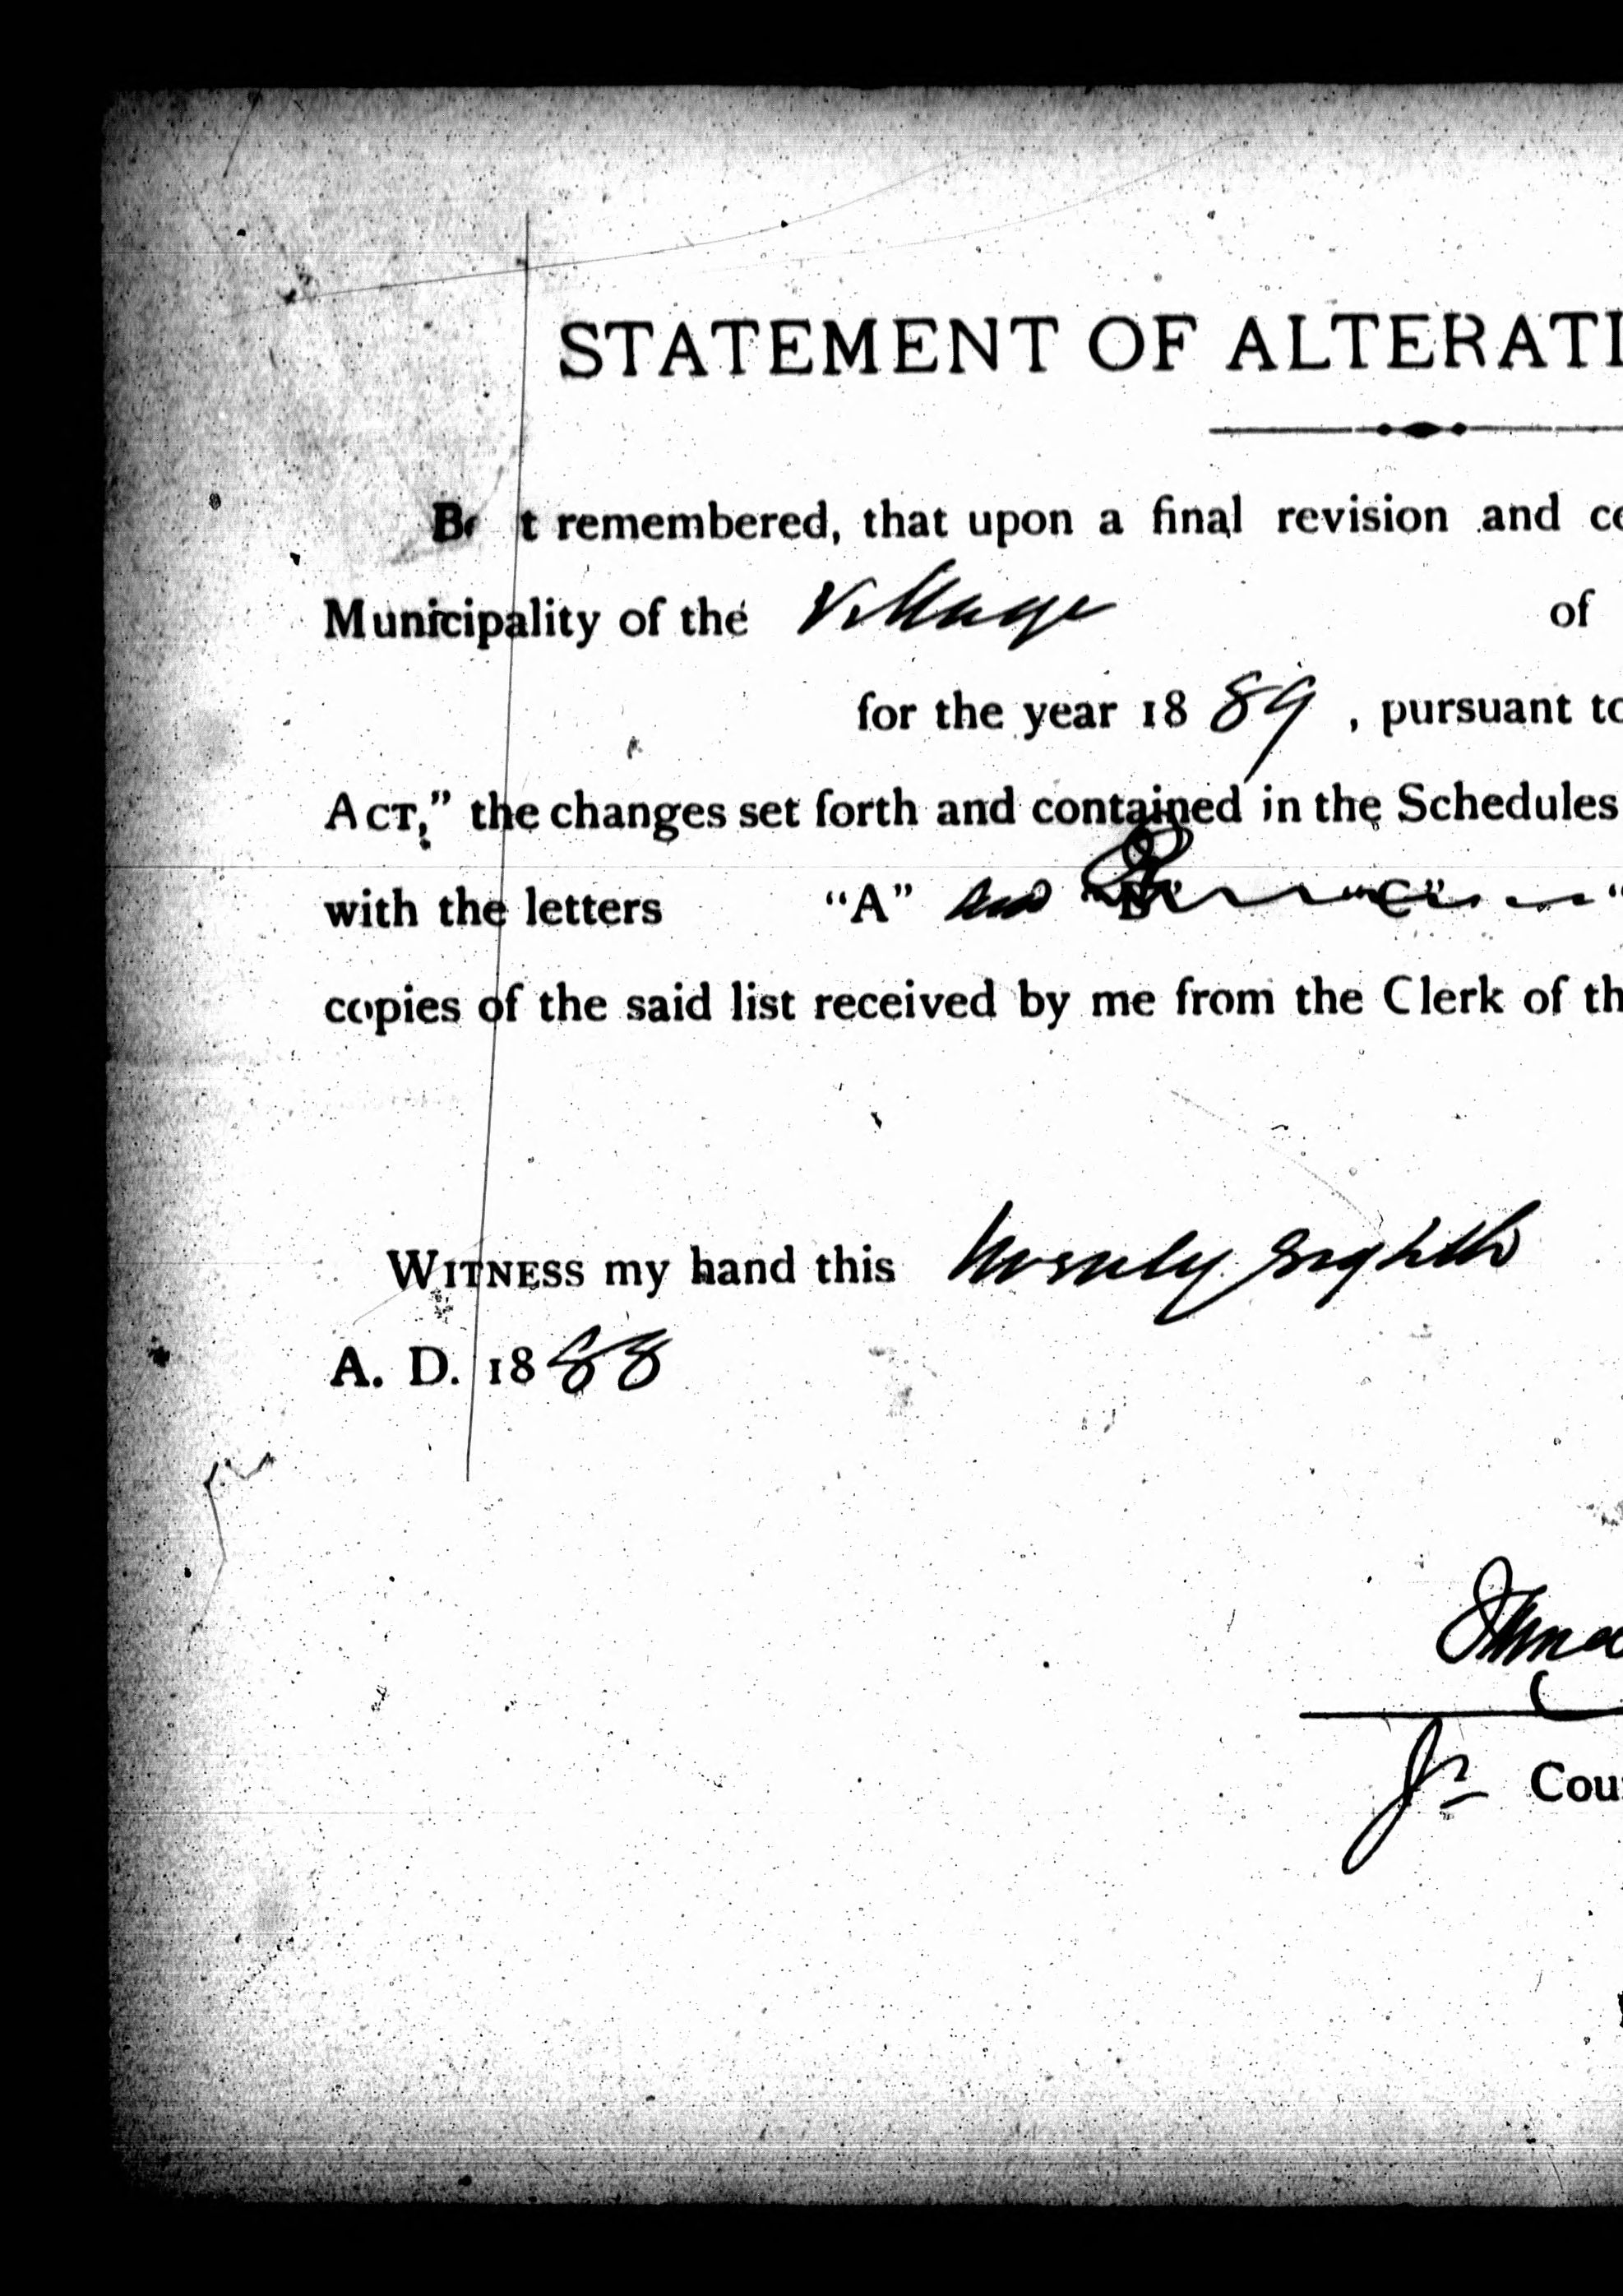 STATEMENT OF ALTERATI
Be t remembered, that upon a final revision and ce
Municipality of the Village of
for the year 1889, pursuant to
ACT," the changes set forth and contained in the Schedules
with the letters "A" and "B" "C" "
copies of the said list received by me from the Clerk of th
WITNESS my hand this twenty eighth
A. D. 1888
Jr Cou